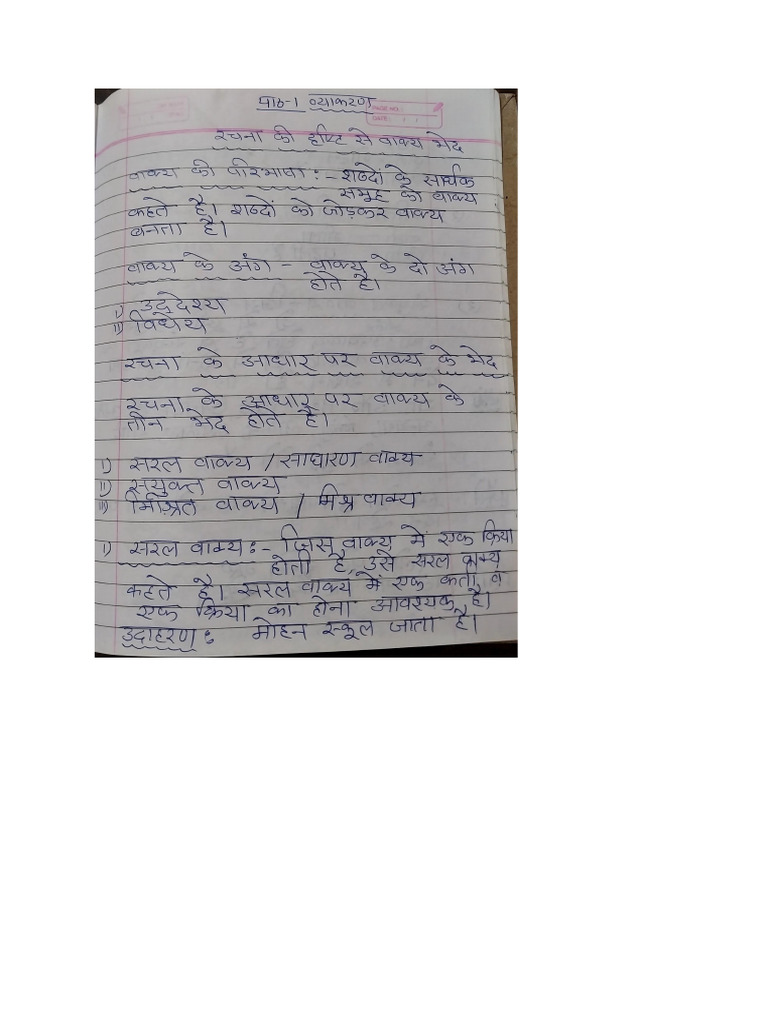 पाठ-1 व्याकरण
PAGE NO.:
DATE: / /
रचना की दृष्टि से वाक्य भेद
वाक्य की परिभाषा :- शब्दों के सार्थक
समूह को वाक्य
कहते है। शब्दों को जोड़कर वाक्य
बनता है।
वाक्य के अंग - वाक्य के दो अंग
होते है।
i) उद्देश्य
ii) विधेय
रचना के आधार पर वाक्य के भेद
रचना के आधार पर वाक्य के
तीन भेद होते है।
i) सरल वाक्य / साधारण वाक्य
ii) सयुक्त वाक्य
iii) मिश्रित वाक्य / मिश्र वाक्य
i) सरल वाक्य :- जिस वाक्य में एक क्रिया
होती है, उसे सरल वाक्य
कहते है। सरल वाक्य में एक कर्ता व
एक क्रिया का होना आवश्यक है।
उदाहरण : मोहन स्कूल जाता है।